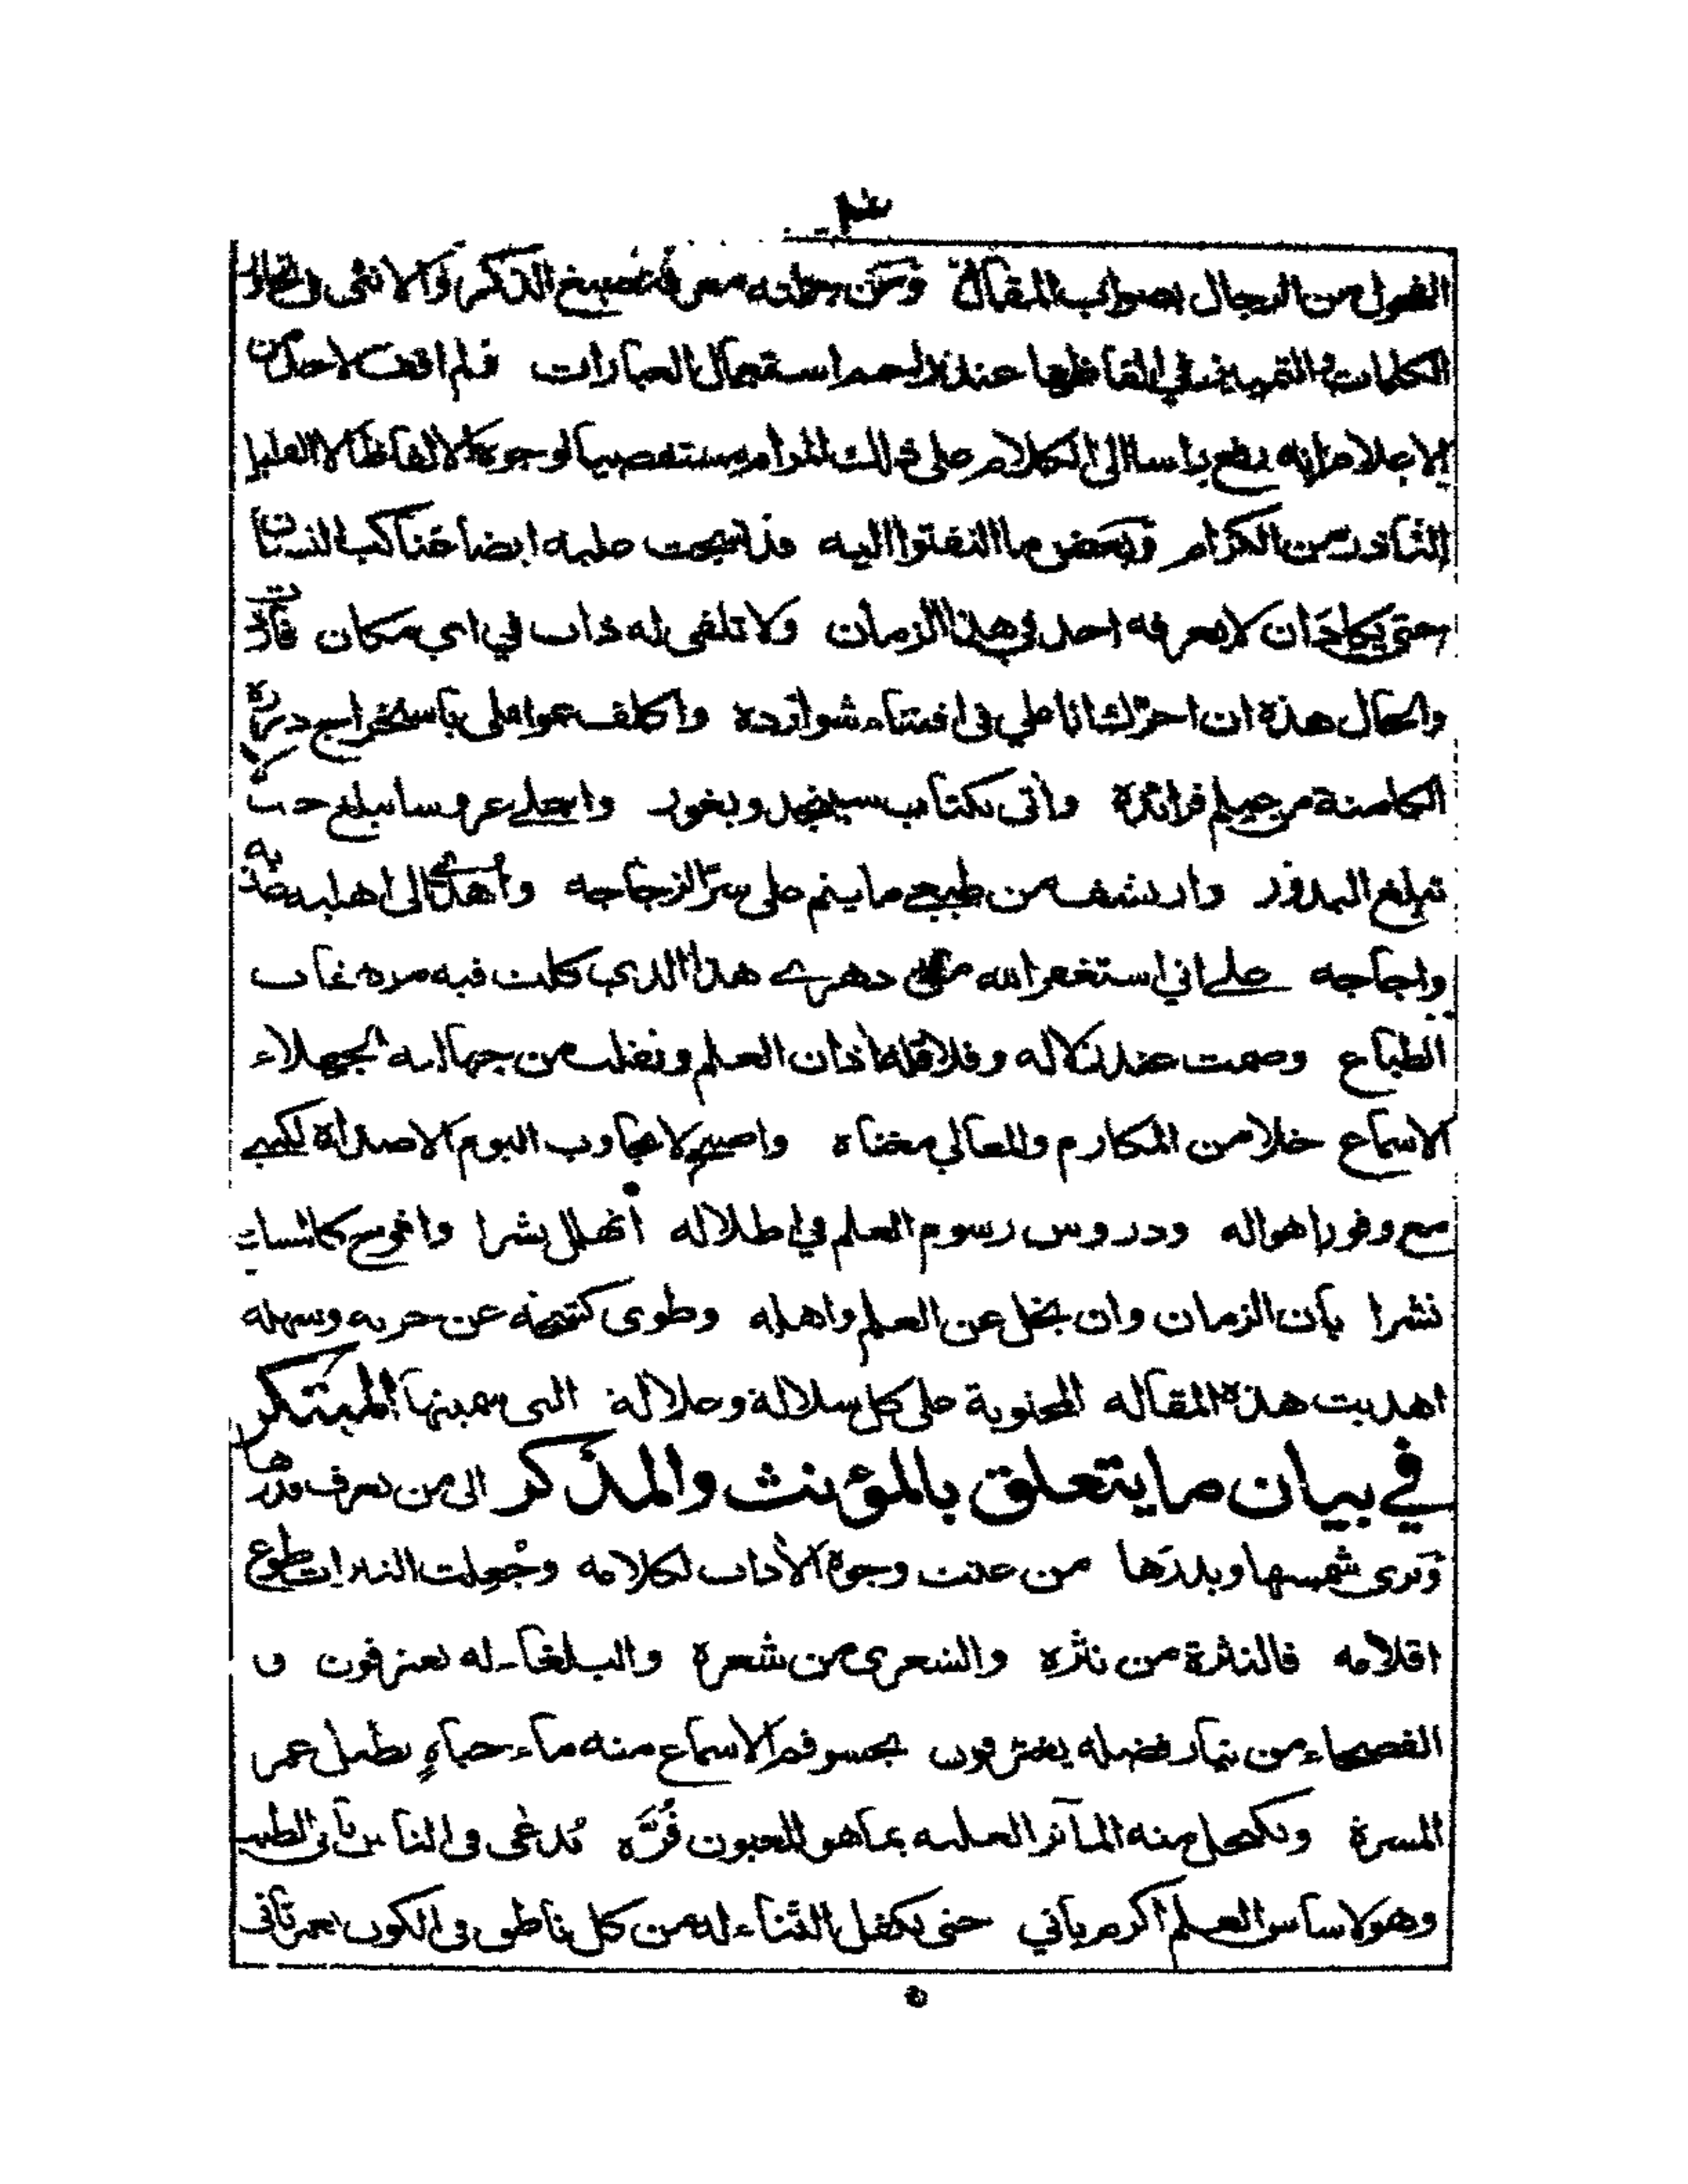 ٣
الفحول من الرجال بصواب المقال ومن جملته معرفة صيغ الذكر والانثى في
الكلمات والتمييز في الفاظها عند استعمال العبارات فلم اقف لاحد من
الاعلام انه بالكلام على ذلك المرام مستقصيا لوجوه الالفاظ الا القليل
من الكرام وبعض ما التفتوا اليه قد نسجت عليه ايضا عناكب النسيان
حتى يكاد ان لا يعرفه احد في هذا الزمان ولا تلفى له ذاب في اي مكان
والحال هذه ان احرك اناملي في اقتناء شوارده واكلف عواملي باستخراج درره
الكامنة من فرائده واتى بكتاب وبغور واجلي عروسا
تبلغ البدور وارتشف من ما ينم على سر الزجاجه واهدي الى اهليه
واجاجه على اني استغفر الله من دهري هذا الذي كلت فيه مرهفات
الطباع وصمت عند اذان العلم ونفلت من جهالته الجهلاء
الاسماع خلا من المكارم والمعالي مغناه واصبح لا يجاوب البوم الا صداه لكني
مع وفور اهواله ودروس رسوم العلم في اطلاله اتهلل بشرا وافوح
نشرا بان الزمان وان بخل عن العلم واهله وطوى عن حزنه وسهله
اهديت هذه المقاله المحتوية على كل سلالة وعلالة التى سميتها المبتكر
في بيان ما يتعلق بالمؤنث والمذكر الى من يعرف قدرها
ويرى شمسها وبدرها من عنت وجوه الآداب لكلامه وجعلت النيرات طوع
اقلامه فالنثرة من نثره والشعرى من شعره والبلغاء له يعترفون و
الفصحاء من فضله يغترفون يحسو فم الاسماع منه ماء حياة يطيل عمر
المسرة وتكحل منه المآثر العلميه بما هو للعيون قره يدعى في الناس بابي الطيب
وهو لاساس العلم اكرم باني حتى تكفل الثناء له من كل ناطق في الكون